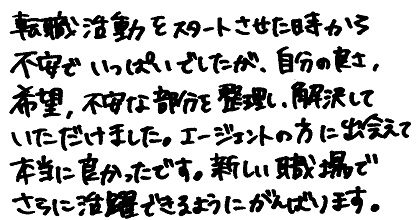 転職活動をスタートさせた時から
不安でいっぱいでしたが、自分の良さ，
希望，不安な部分を整理し、解決して
いただけました。エージェントの方に出会えて
本当に良かったです。新しい職場で
さらに活躍できるようにがんばります。